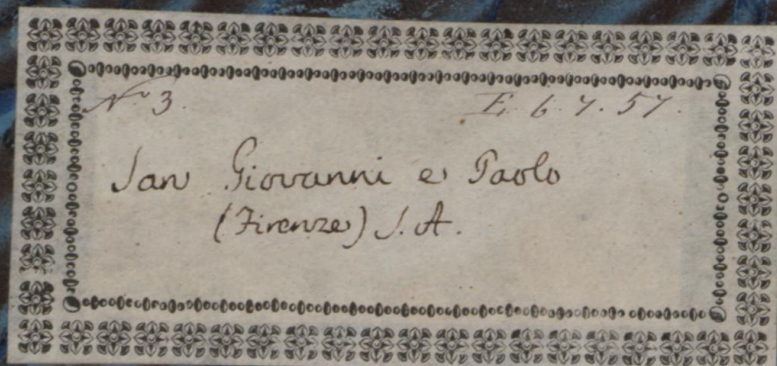 No 3. E. 6. 7. 57.
San Giovanni e Paolo
(Firenze) S. A.